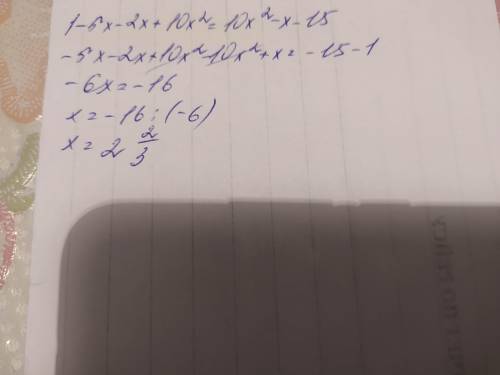 1-5x-2x+10x²=10x²-x-15
-5x-2x+10x²-10x²+x=-15-1
-6x=-16
x=-16:(-6)
x=2 2/3